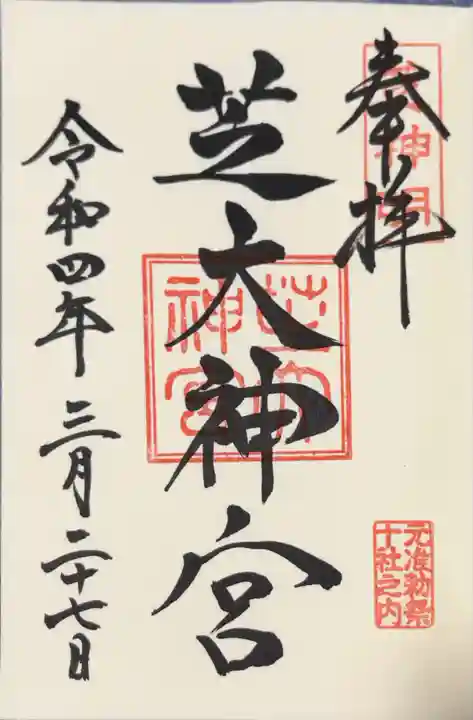 奉拝
芝神明
芝大神宮
芝大神宮
元准勅祭
十社之内
令和四年三月二十七日